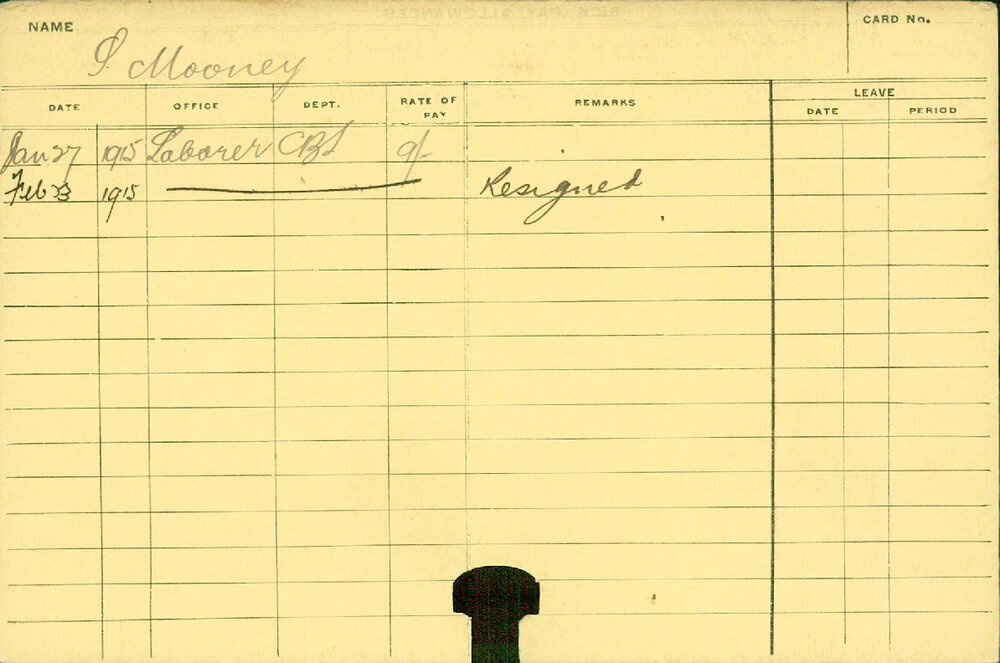 NAME
S. Mooney
CARD No.
DATE OFFICE DEPT. RATE OF PAY REMARKS LEAVE
DATE PERIOD
Jan 27 1915 Laborer CBL 9/-
Feb 23 1915 Resigned